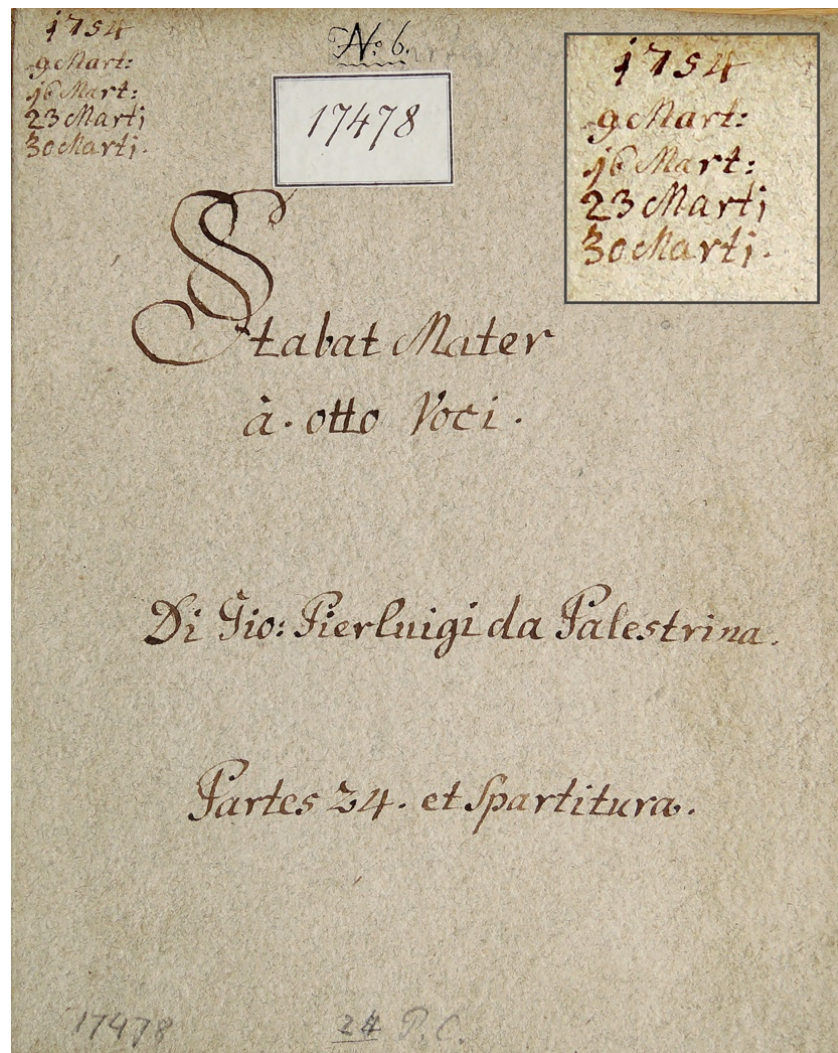 1754
9 Mart:
16 Mart:
23 Martj
30 Martj.
No 6.
17478
1754
9 Mart:
16 Mart:
23 Martj
30 Martj.
Stabat Mater
à. otto Voci.
Di Gio: Pierluigi da Palestrina.
Partes 24. et Spartitura.
17478
24 P. C.